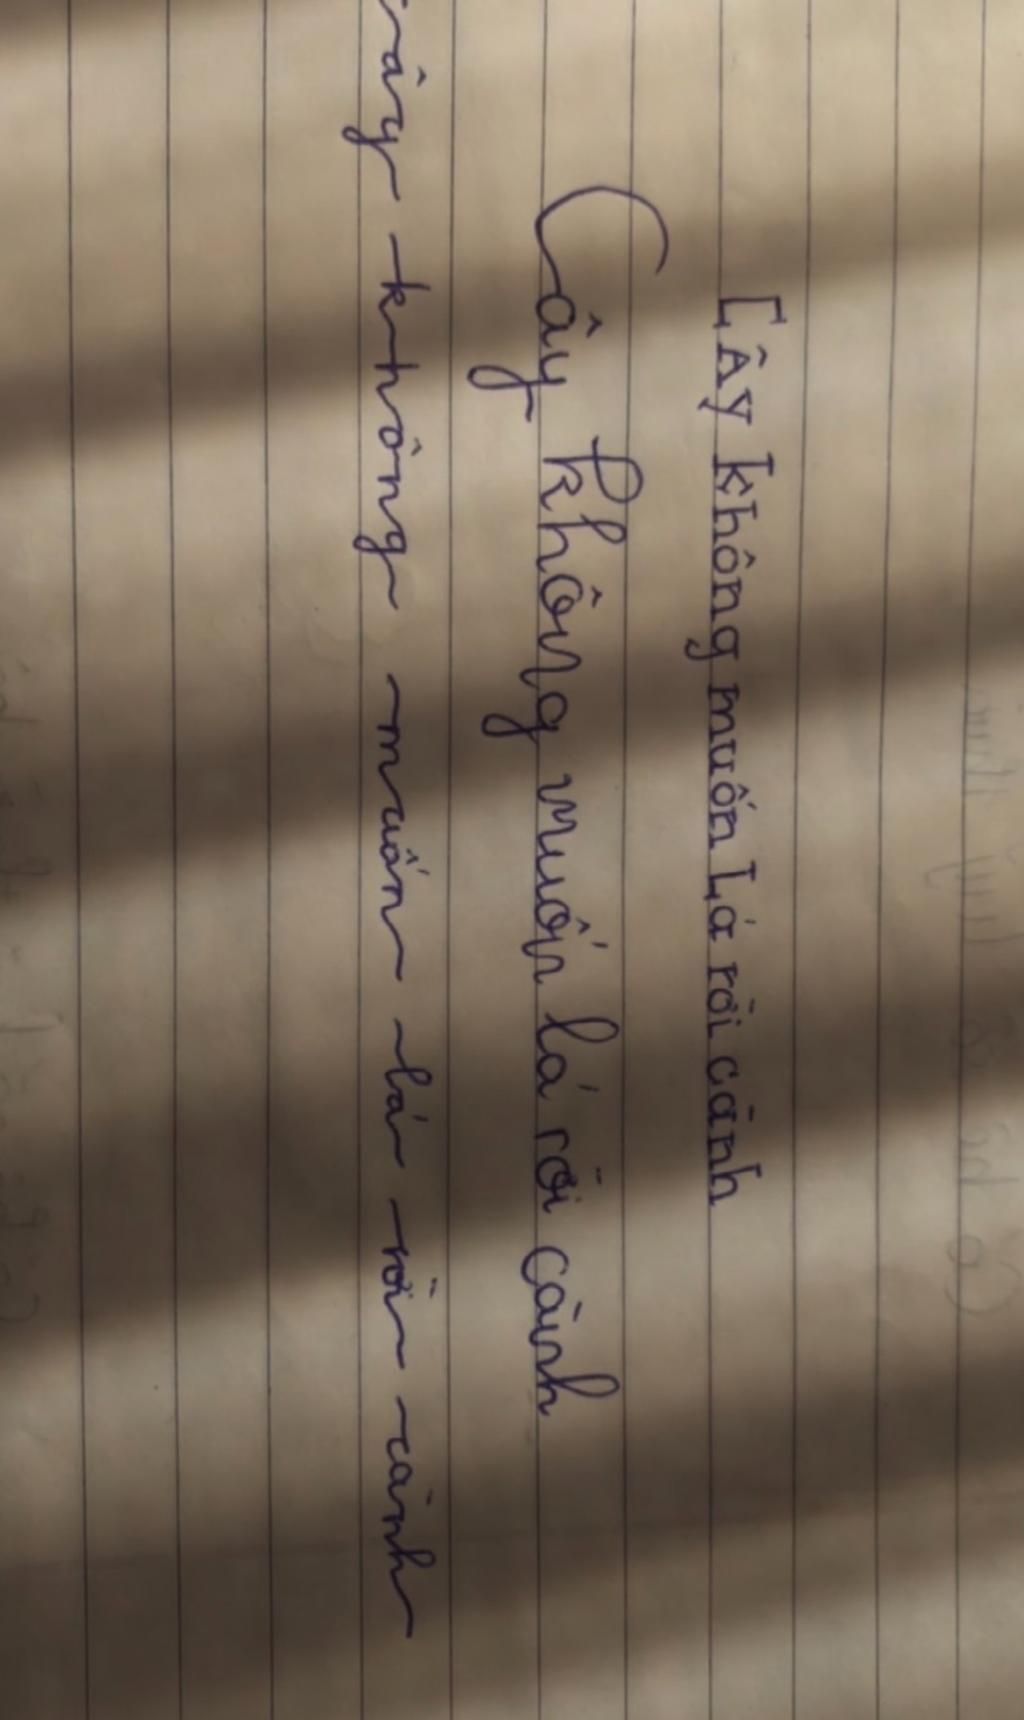 Cây không muốn Lá rời cành
Cây không muốn lá rời cành
cây không muốn lá rời cành